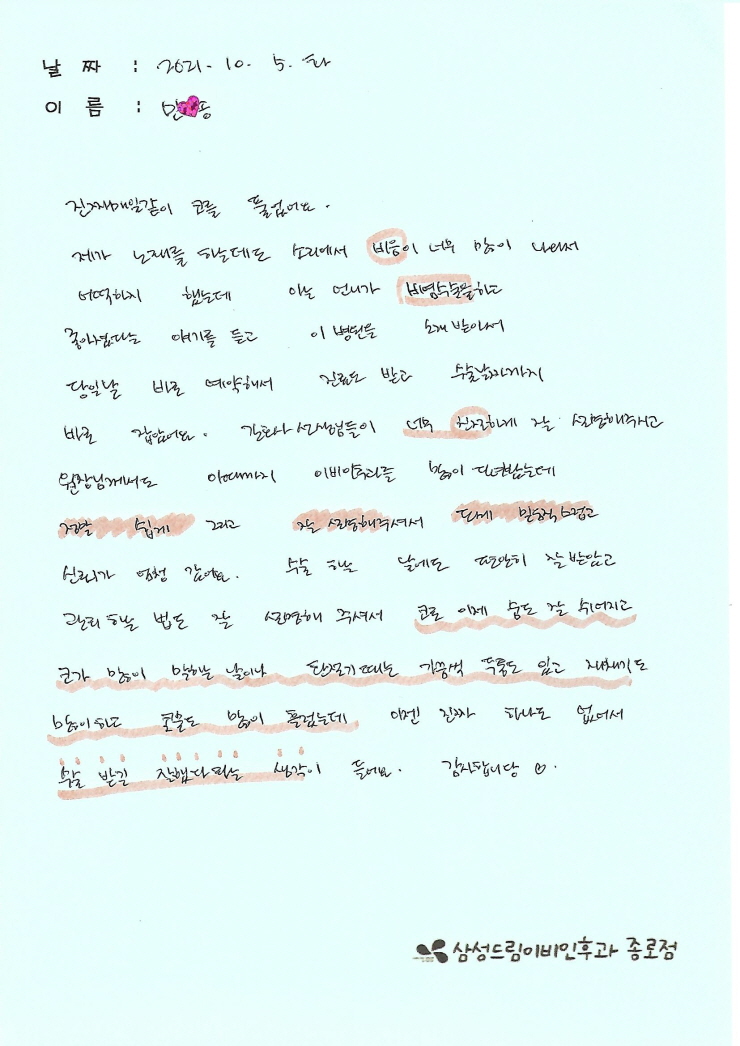 날 짜 : 2021. 10. 5. 화
이 름 : 민 홍
진짜매일같이 코를 풀었어요.
제가 노래를 하는데도 소리에서 비음이 너무 많이 나와서
어떡하지 했는데 아는 언니가 비염수술을하고
좋아졌다는 얘기를 듣고 이 병원을 소개받아서
당일날 바로 예약해서 진료도 받고 수술날짜까지
바로 잡았어요. 간호사 선생님들이 너무 친절하게 잘 설명해주시고
원장님께서도 여태까지 이비인후과를 많이 다녀봤는데
정말 쉽게 그리고 잘 설명해주셔서 되게 믿음직스럽고
신뢰가 엄청 갔어요. 수술 하는 날에도 편안히 잘받았고
관리 하는 법도 잘 설명해 주셔서 코로 이제 숨도 잘 쉬어지고
코가 많이 막히는 날이나 환절기때는 가끔씩 두통도 있고 재채기도
많이하고 콧물도 많이 흘렀는데 이젠 진짜 하나도 없어서
수술 받길 잘했다라는 생각이 들어요. 감사합니당 ♡.
삼성드림이비인후과 종로점